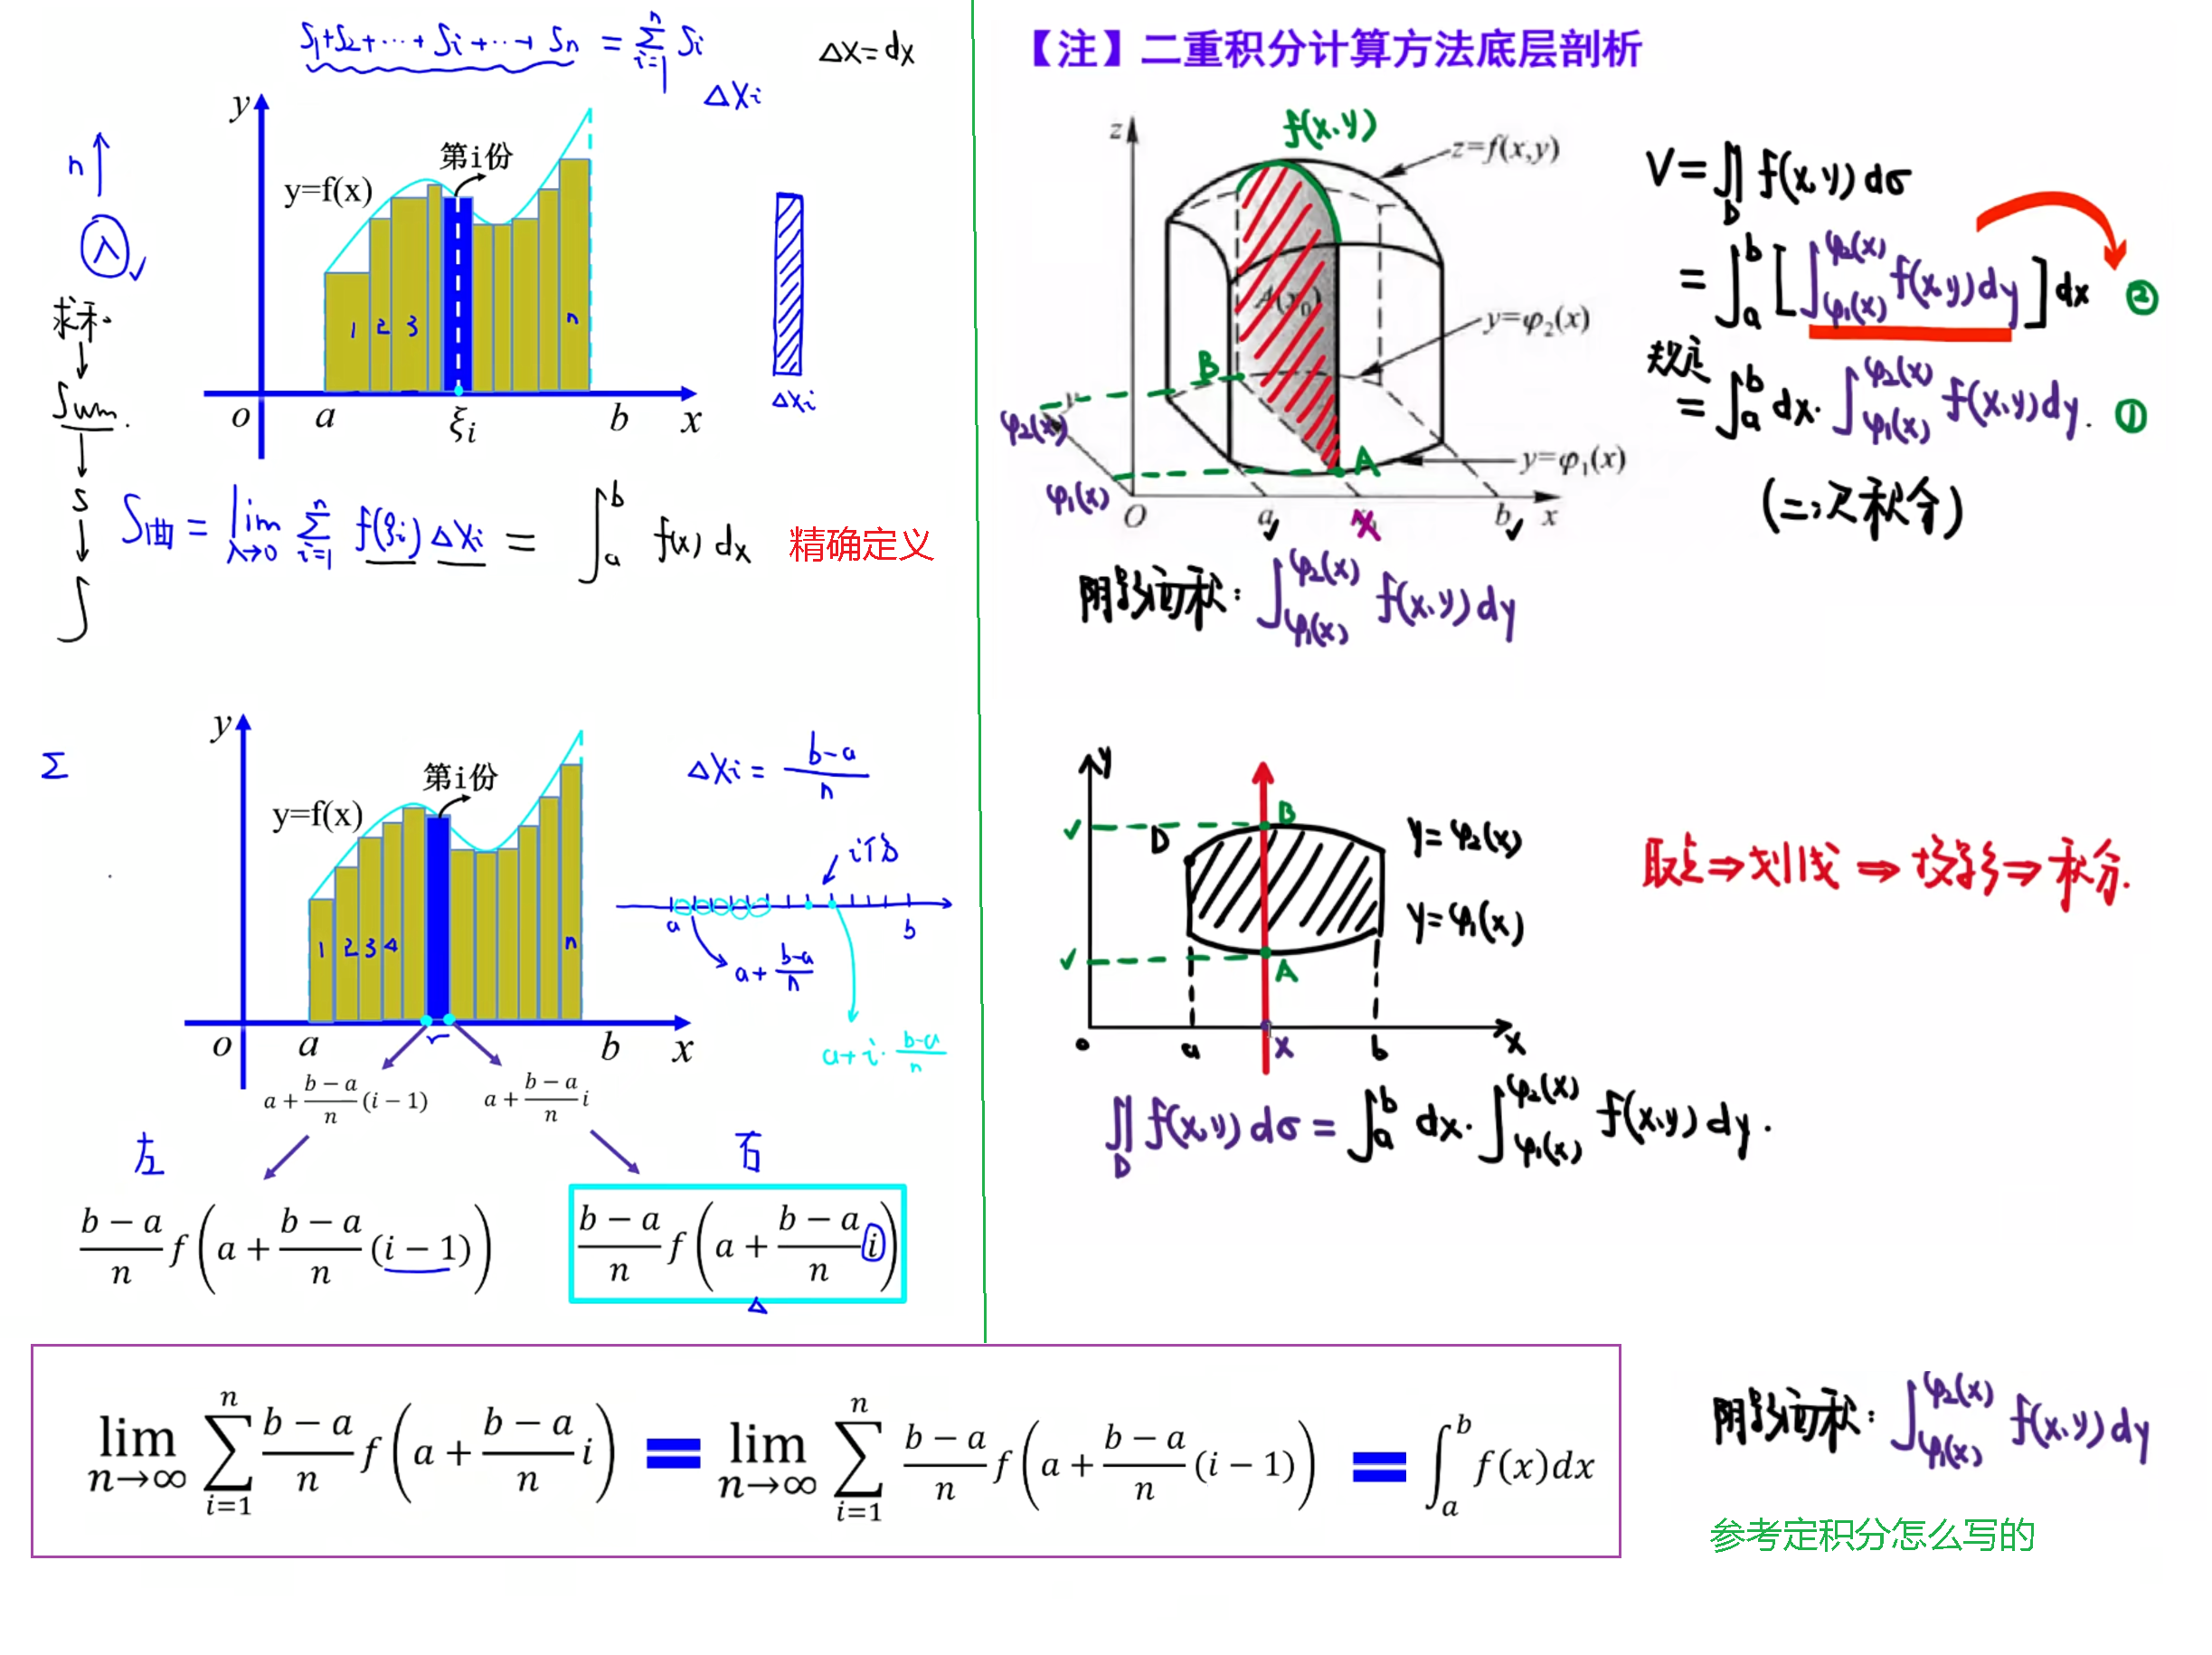 S₁+S₂+⋯+Sᵢ+⋯+Sₙ = ∑ᵢ₌₁ⁿ Sᵢ
Δx=dx
ΔXᵢ
y
n
第i份
y=f(x)
λ
1 2 3 n
求和
Sum
S
∫
o a ξᵢ b x
ΔXᵢ
S曲 = lim λ→0 ∑ᵢ₌₁ⁿ f(ξᵢ) ΔXᵢ = ∫ₐᵇ f(x) dx
精确定义
Σ
y
第i份
y=f(x)
1 2 3 4 n
o a b x
ΔXᵢ = (b-a)/n
i个
a b
a+(b-a)/n
a+i·(b-a)/n
a+(b−a)/n(i−1)
a+(b−a)/n i
左
右
(b−a)/n f(a+(b−a)/n(i−1))
(b−a)/n f(a+(b−a)/n i)
Δ
【注】二重积分计算方法底层剖析
f(x,y)
z
z=f(x,y)
A(x₀)
y=φ₂(x)
B
y
φ₂(x)
A
y=φ₁(x)
φ₁(x)
O a x b x
阴影面积: ∫_{φ₁(x)}^{φ₂(x)} f(x,y)dy
V=∬_D f(x,y)dσ
=∫ₐᵇ[∫_{φ₁(x)}^{φ₂(x)} f(x,y)dy]dx ②
规定
=∫ₐᵇ dx·∫_{φ₁(x)}^{φ₂(x)} f(x,y)dy. ①
(二次积分)
y
B
D
y=φ₂(x)
y=φ₁(x)
A
o a x b x
取点⇒划线⇒投影⇒积分.
∬_D f(x,y)dσ=∫ₐᵇ dx·∫_{φ₁(x)}^{φ₂(x)} f(x,y)dy.
lim n→∞ ∑ᵢ₌₁ⁿ (b−a)/n f(a+(b−a)/n i) = lim n→∞ ∑ᵢ₌₁ⁿ (b−a)/n f(a+(b−a)/n(i−1)) = ∫ₐᵇ f(x)dx
阴影面积: ∫_{φ₁(x)}^{φ₂(x)} f(x,y)dy
参考定积分怎么写的